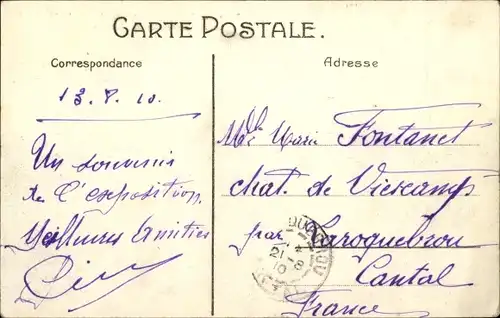 CARTE POSTALE.
Correspondance
Adresse
13.8.10.
Un souvenir
de l'exposition
Meilleures Amitiés
Mlle Marie Fontanet
chat. de Viescamp
par Laroquebrou
Cantal
France
21-8
10